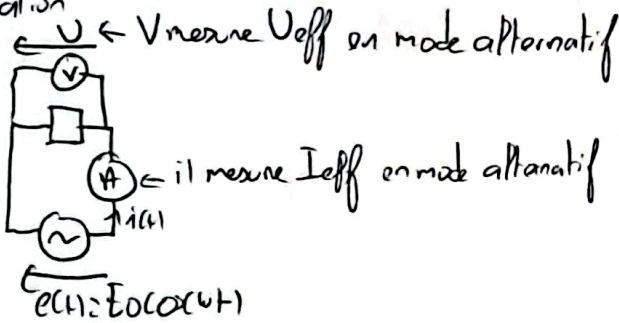 ation
U ← V mesure Ueff en mode alternatif
V
A ← il mesure Ieff en mode alternatif
i(t)
~
e(t) = E0cos(ωt)